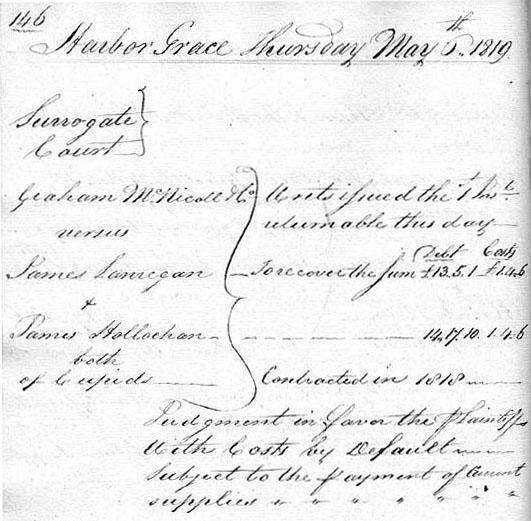 146
Harbor Grace Thursday May 6th. 1819
Surrogate
Court
Graham McNicoll & Co Writs issued the 1st Inst
versus returnable this day
Debt Costs
James Lanregan To recover the Sum £13.5.1 £1.4.6
&
James Hollochan 14.17.10. 1.4.6
both
of Cupids Contracted in 1818
Judgment in favor the Plaintiffs
With Costs by Default
Subject to the payment of Current
supplies " " " " " "